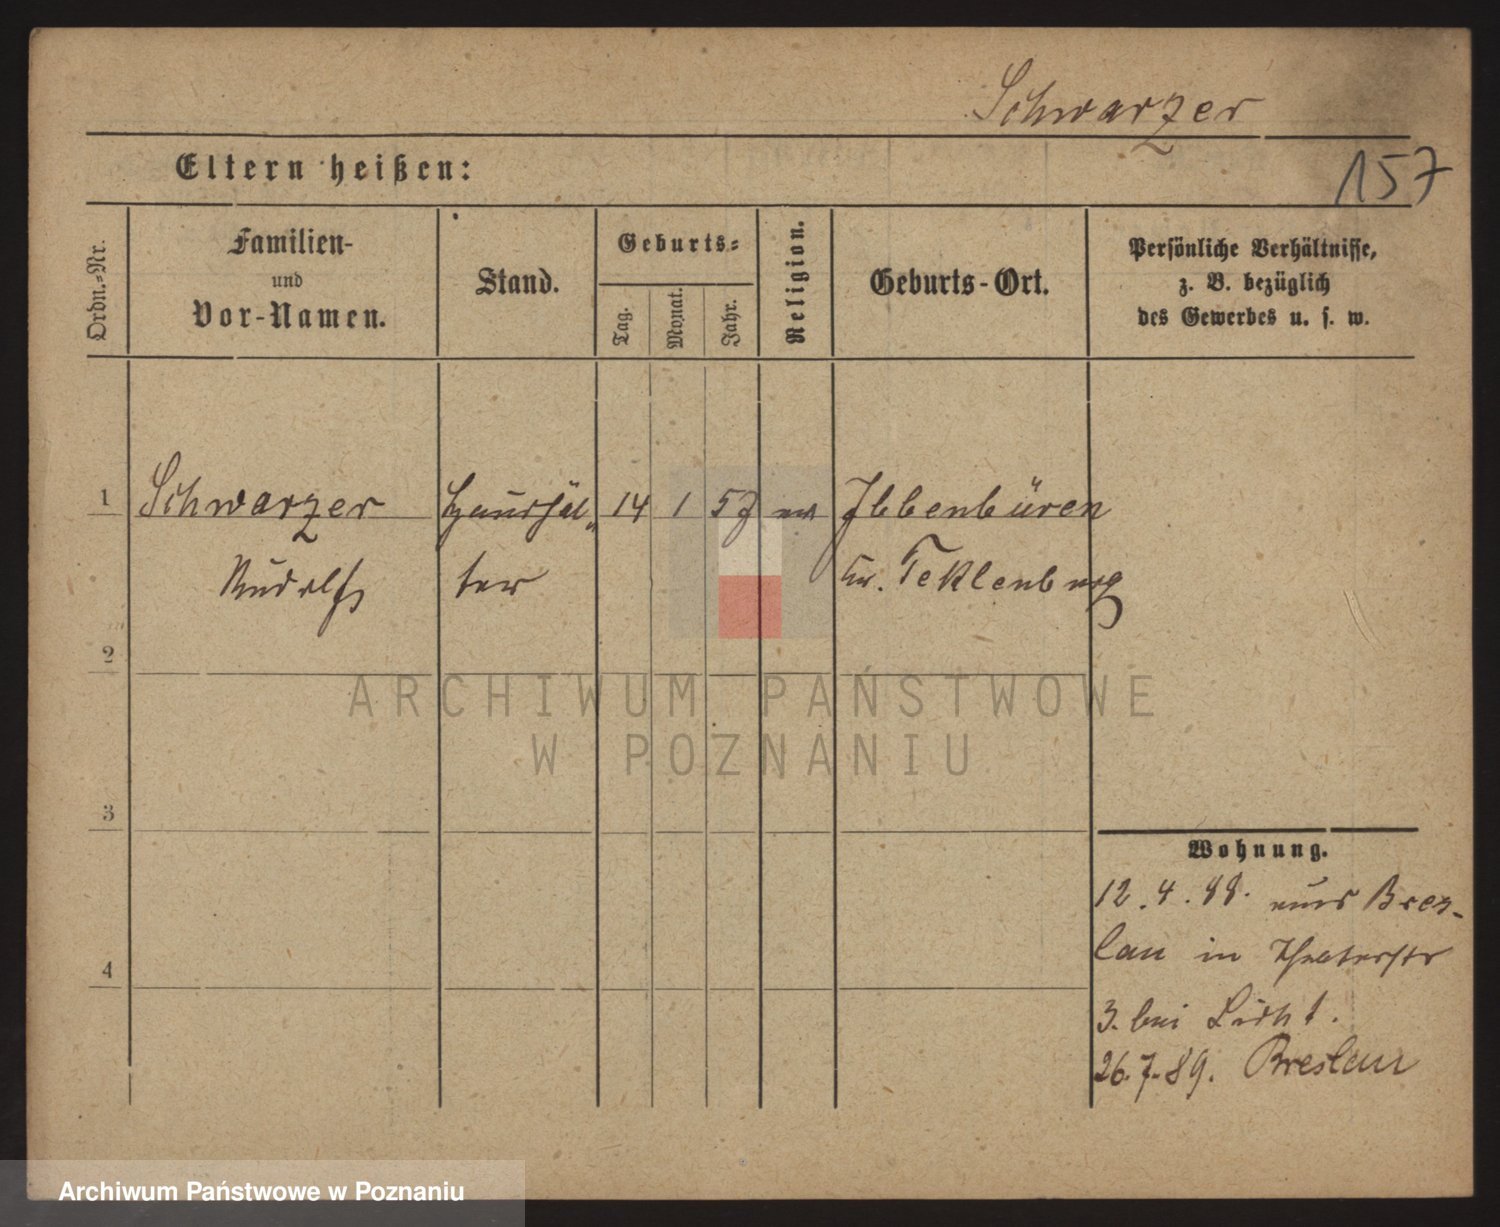 Schwarzer
157
Eltern heißen:
Ordn.=Nr.
Familien-
und
Vor-Namen.
Stand.
Geburts=
Tag.
Monat.
Jahr.
Religion.
Geburts-Ort.
Persönliche Verhältnisse,
z. B. bezüglich
des Gewerbes u. s. w.
1 Schwarzer Haushäl„ 14 1 57 Ibbenbüren
Rudolf ter Kr. Teklenburg
2
ARCHIWUM PAŃSTWOWE
W POZNANIU
3
Wohnung.
12.4.88. aus Bres-
lau in Theaterstr
4
3. bei Licht.
26.7.89. Breslau
Archiwum Państwowe w Poznaniu